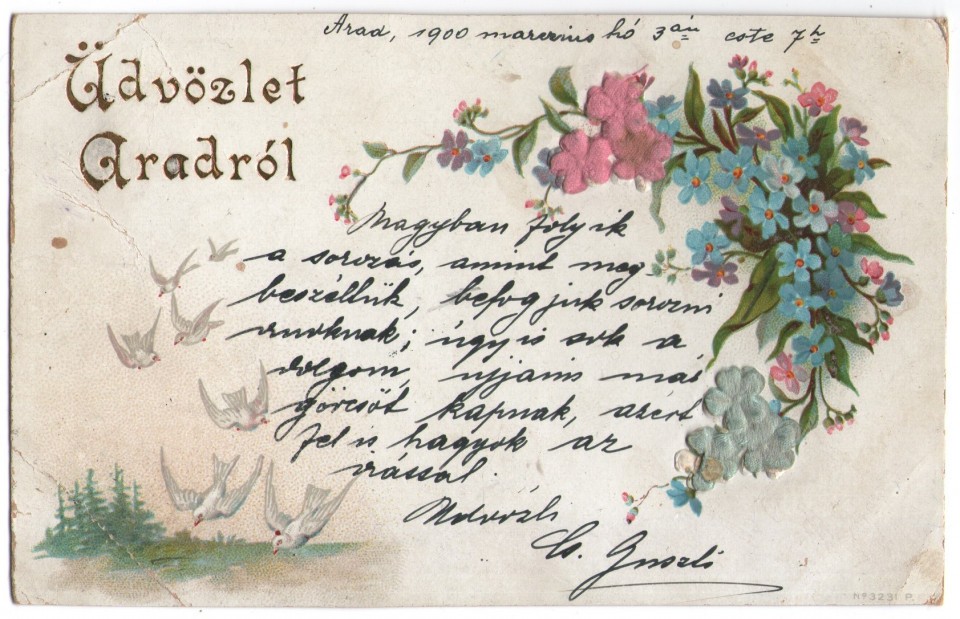 Arad, 1900 marczius hó 3án este 7h
Üdvözlet
Aradról
Nagyban folyik
a sorozás, amint meg
beszéltük, befogjuk sorozni
úgyis sok a
dolgom, ujjaim már
görcsöt kapnak, azért
fel is hagyok az
írással.
Üdvözli
Cs. Guszti
No 3231 P.